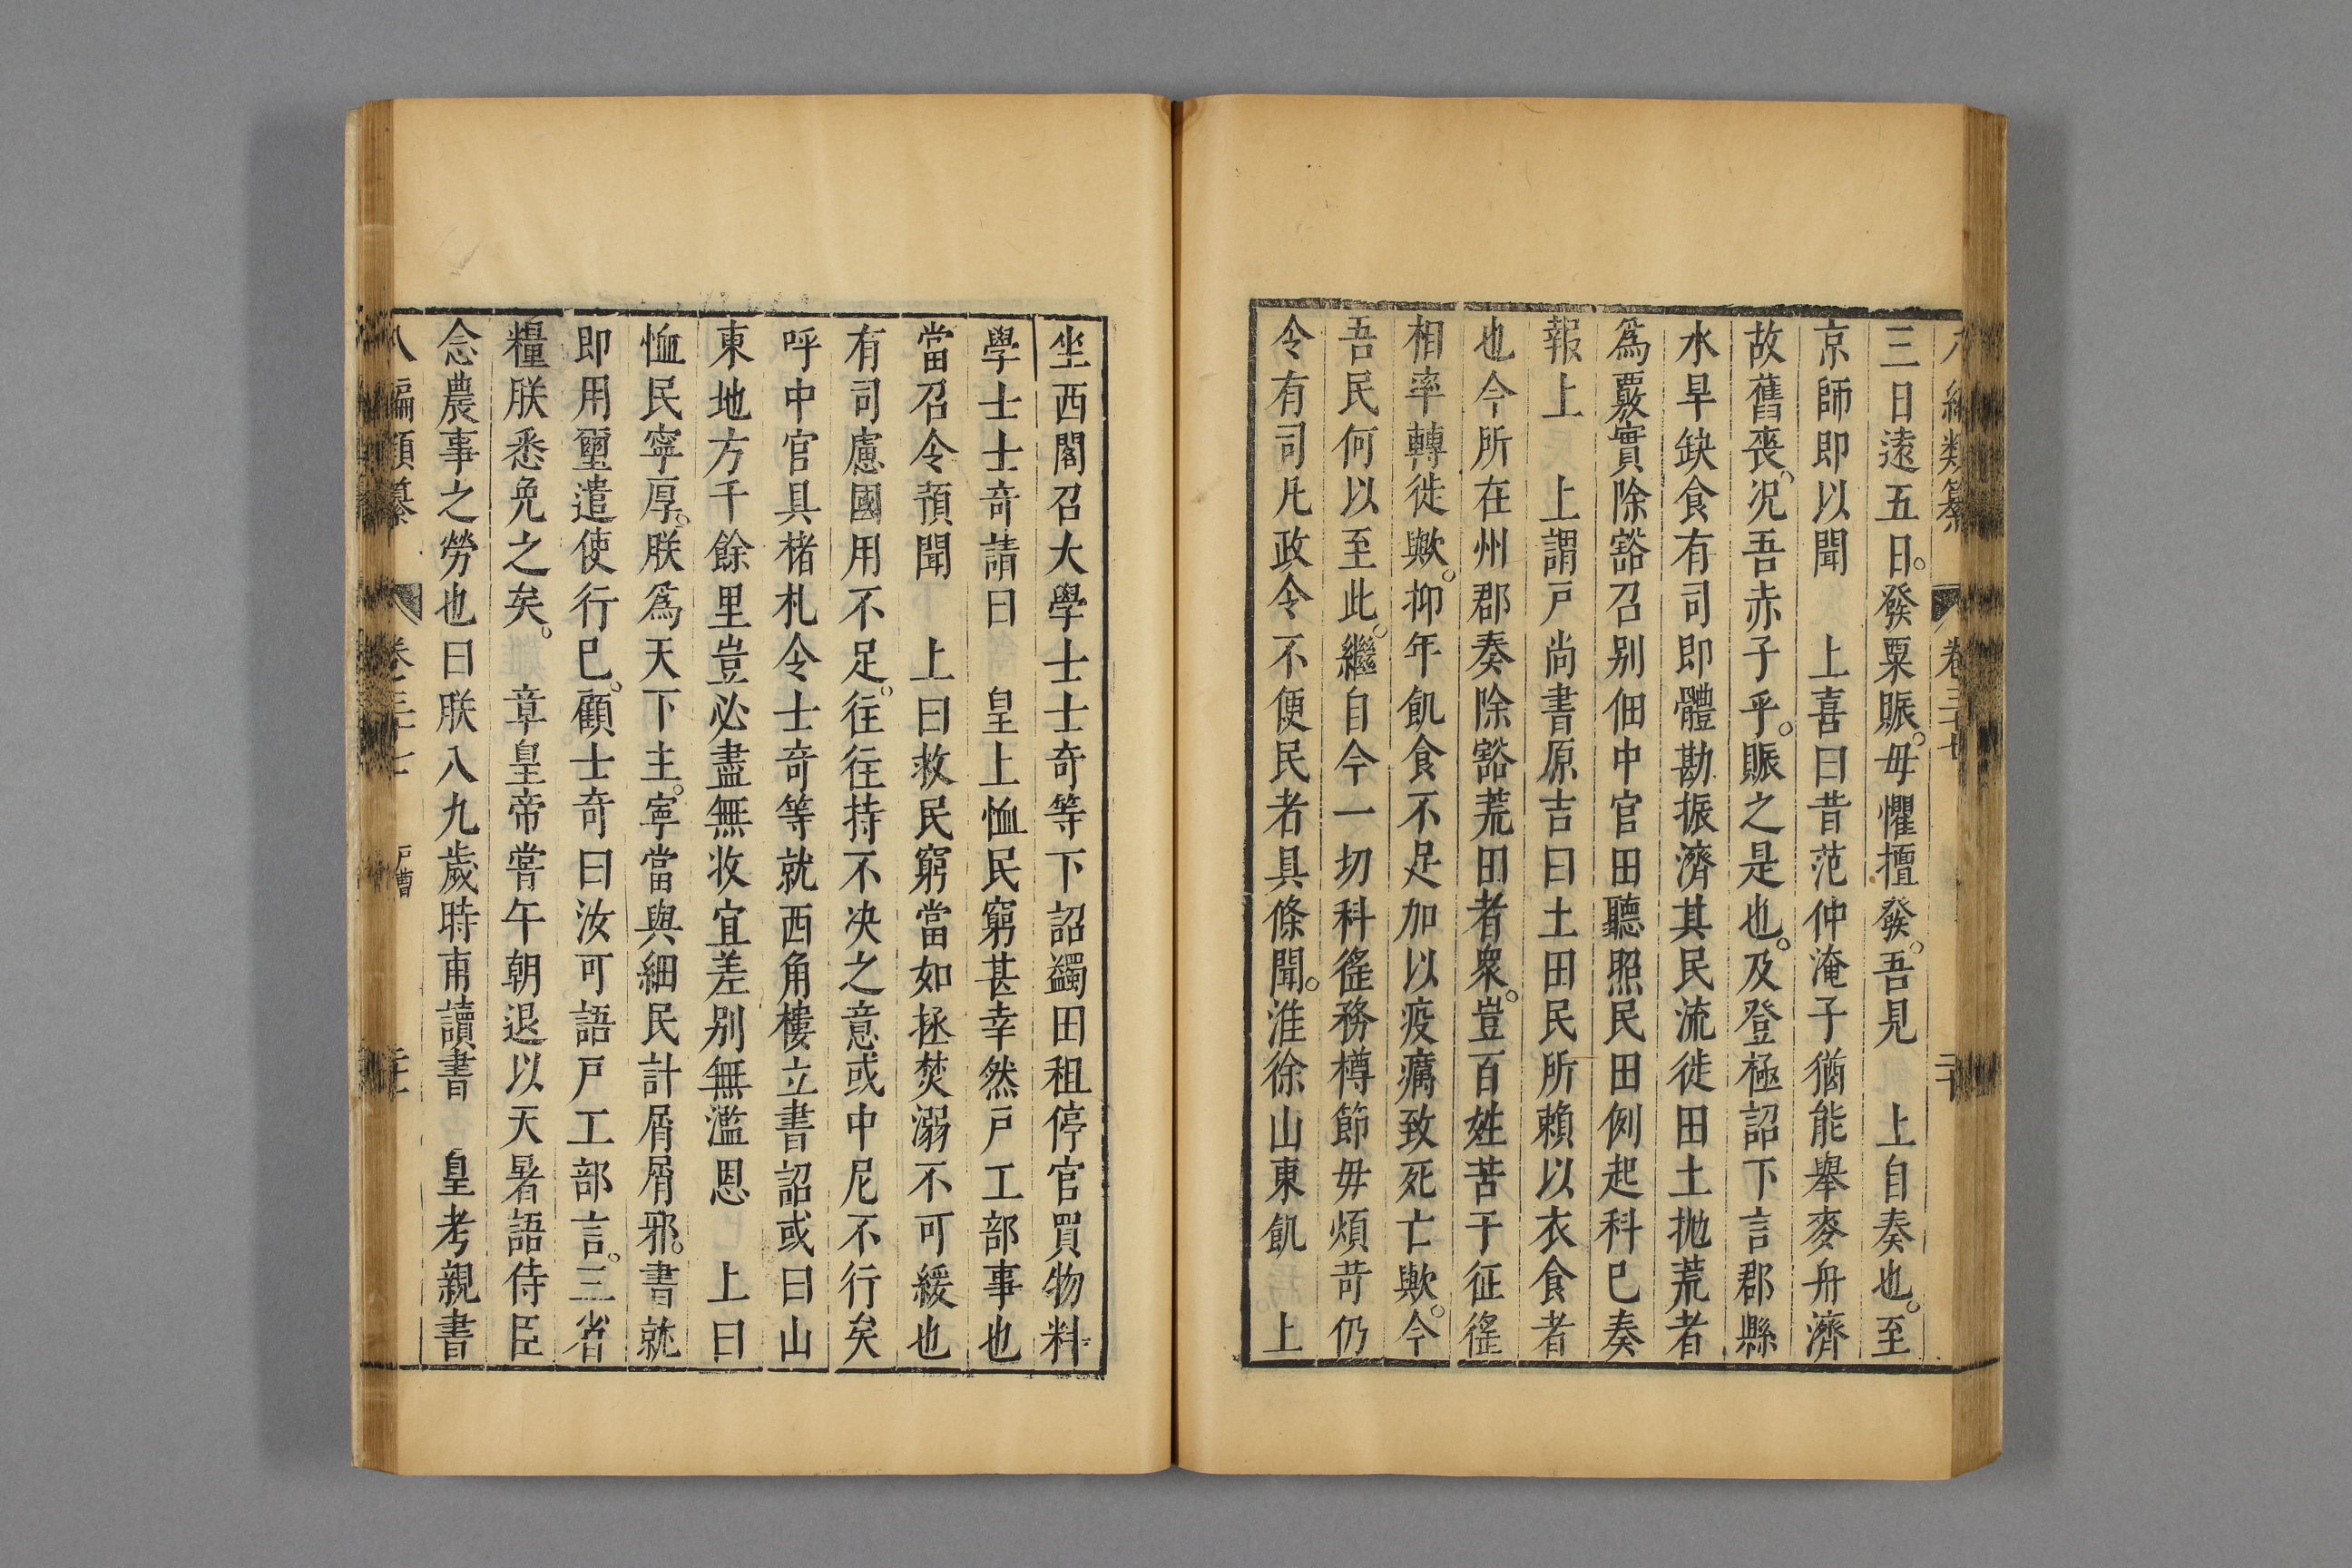 三日遠五日。發粟賑。毋懼擅發。吾見　上自奏也。至
京師即以聞　上喜曰昔范仲淹子猶能舉麥舟濟
故舊喪、况吾赤子乎。賑之是也。及登極詔下言郡縣
水旱缺食有司即體勘振濟其民流徙田土抛荒者
爲覈實除豁召别佃中官田聽照民田例起科巳奏
報上　上謂戸尚書原吉曰土田民所賴以衣食者
也今所在州郡奏除豁荒田者衆。豈百姓苦于征徭
相率轉徙歟。抑年飢食不足加以疫癘致死亡歟。今
吾民何以至此。繼自今一切科徭務樽節毋煩苛仍
令有司凡政令不便民者具條聞。淮徐山東飢　上
坐西閣召大學士士奇等下詔蠲田租停官買物料
學士士奇請曰　皇上恤民窮甚幸然戸工部事也
當召令預聞　上曰救民窮當如拯焚溺不可緩也
有司慮國用不足。往往持不决之意或中尼不行矣
呼中官具楮札令士奇等就西角樓立書詔或曰山
東地方千餘里豈必盡無收宜差别無濫恩　上曰
恤民寧厚。朕爲天下主。寧當與細民計屑屑邪。書就
即用璽遣使行巳。顧士奇曰汝可語戸工部言。三省
糧朕悉免之矣。　章皇帝嘗午朝退以天暑語侍臣
念農事之勞也曰朕八九歲時甫讀書　皇考親書
八編類纂　卷三十七　戸曹